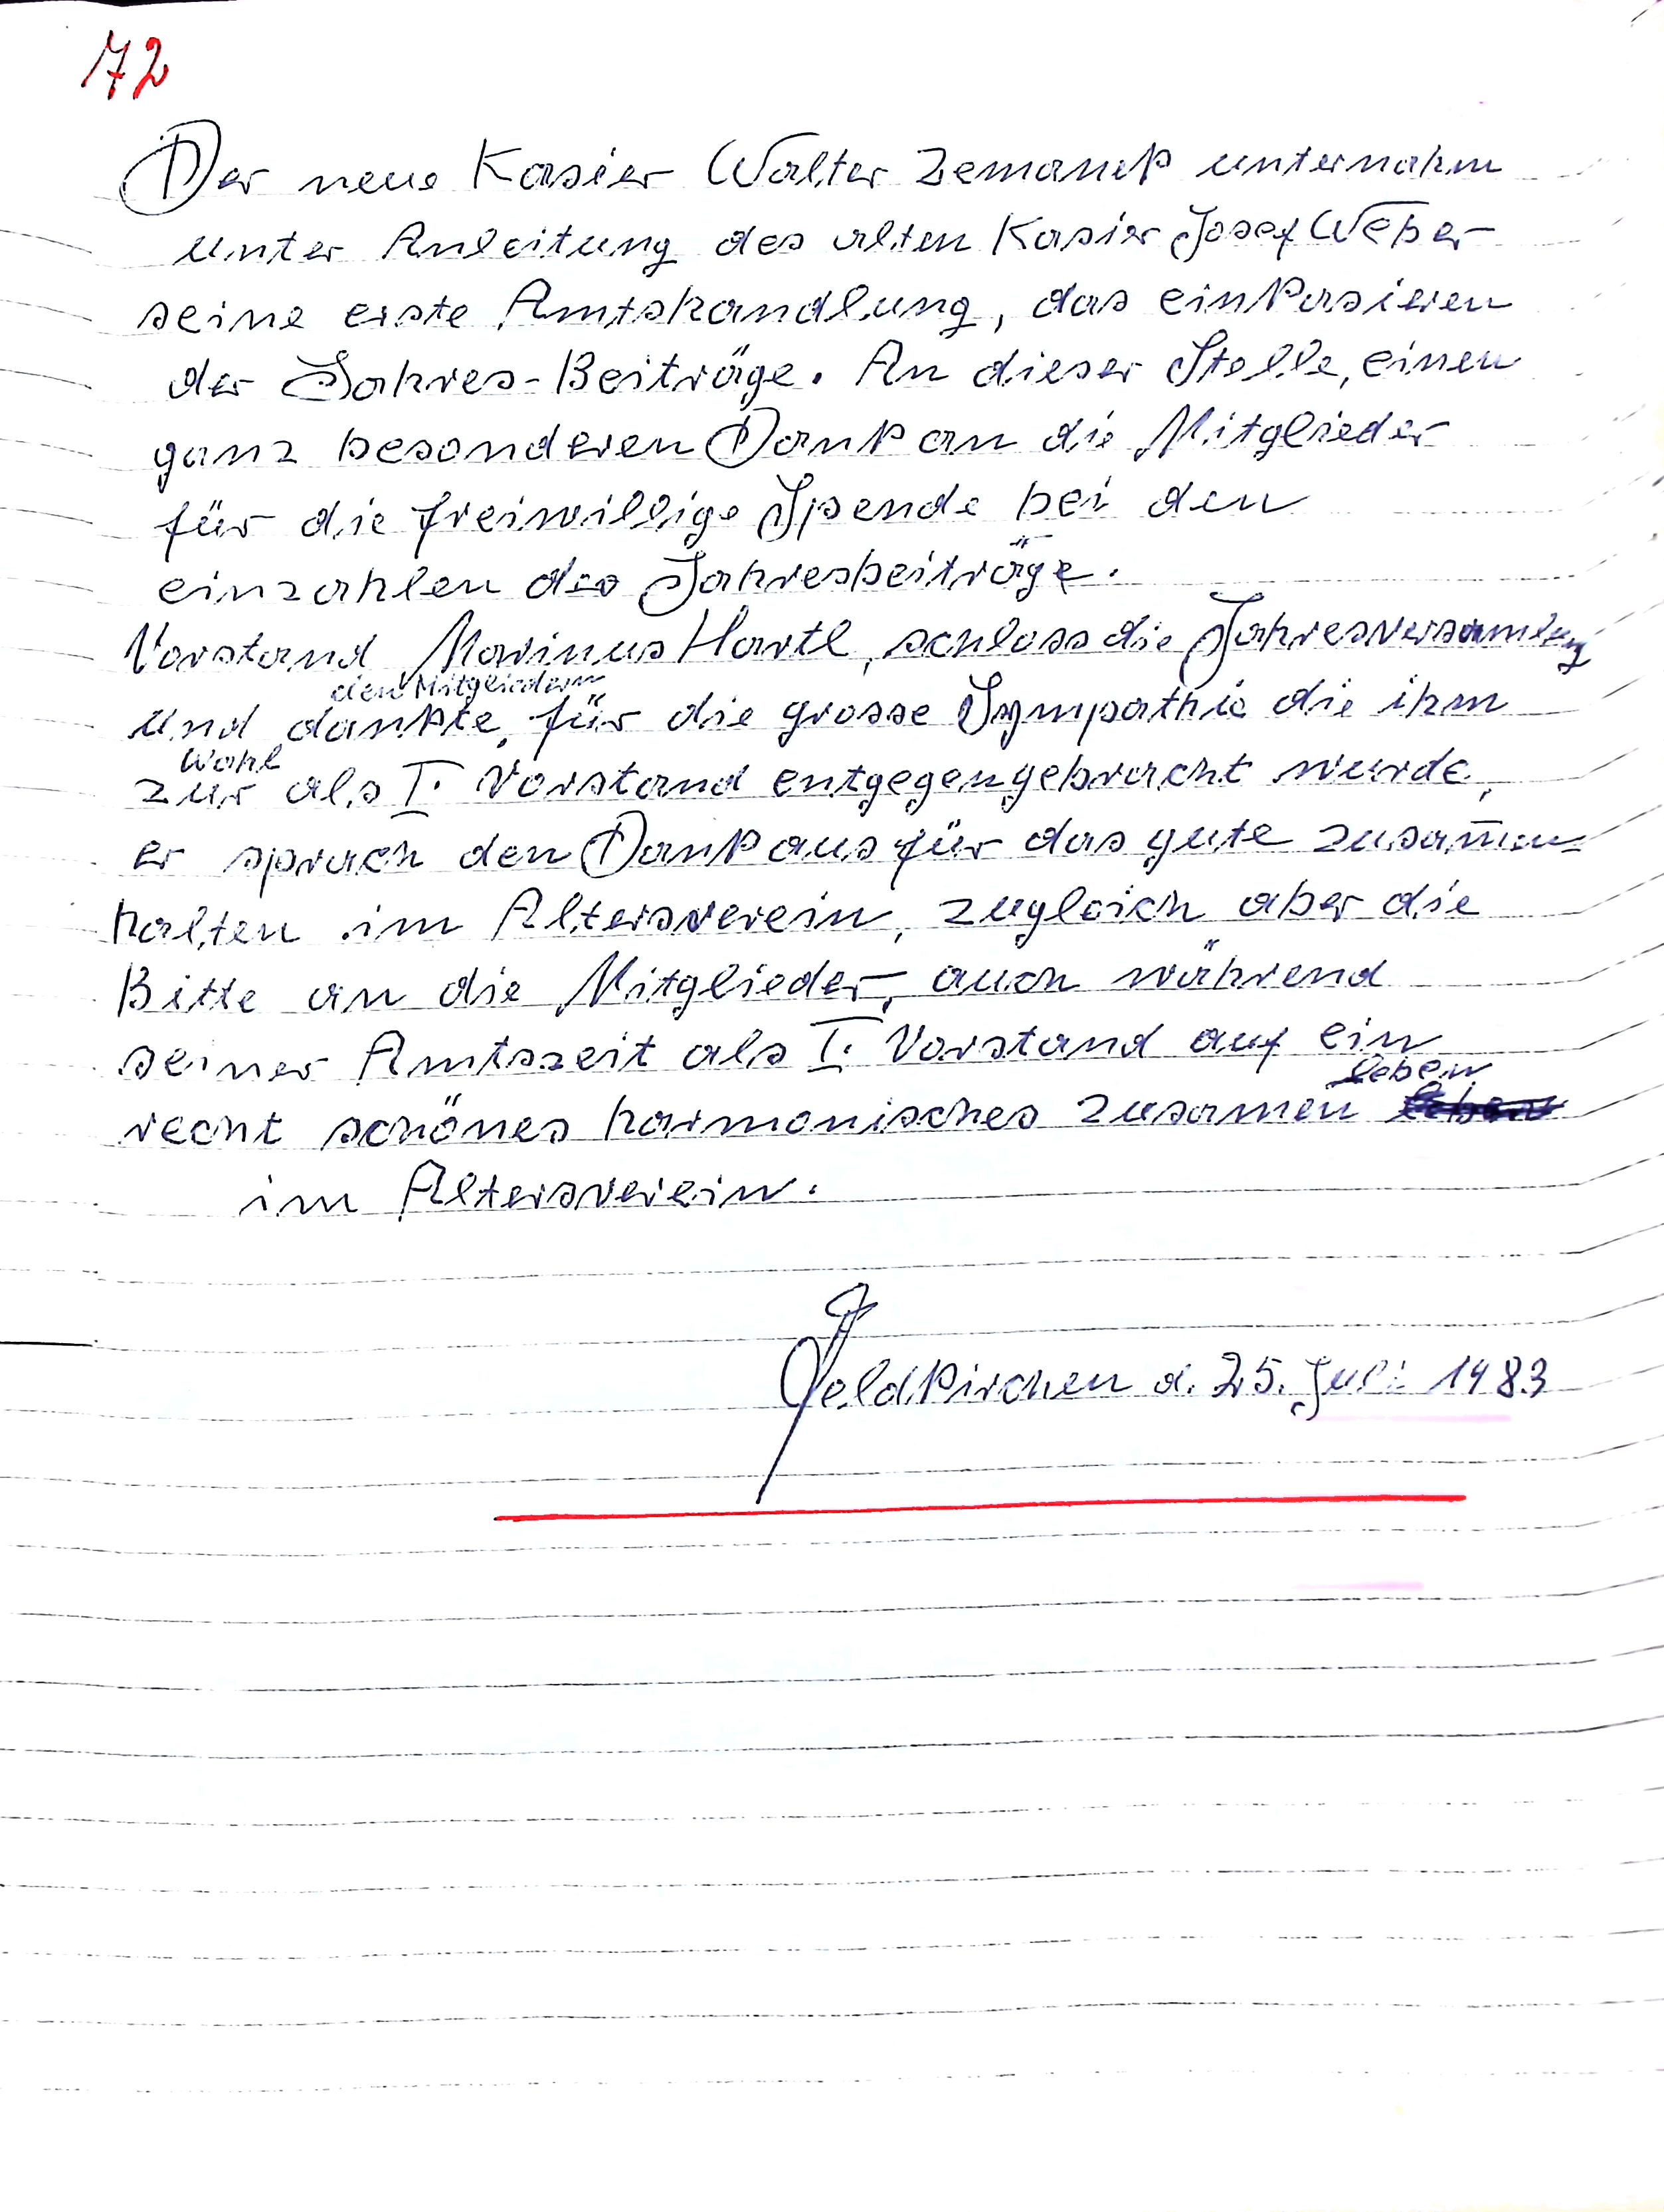 72
Der neue Kasier Walter Zemanek unternahm
unter Anleitung des alten Kasier Josef Weber
seine erste Amtshandlung, das einkasieren
der Jahres-Beiträge. An dieser Stelle, einen
ganz besonderen Dank an die Mitglieder
für die freiwillige Spende bei den
einzahlen des Jahresbeiträge.
Vorstand Marinus Hartl, schloss die Jahresversamlung
den Mitgliedern
und dankte, für die grosse Sympathie die ihm
Wahl
zur als I. Vorstand entgegengebracht wurde,
er sprach den Dank aus für das gute zusam̅en=
halten im Altersverein, zugleich aber die
Bitte an die Mitglieder, auch während
seiner Amtszeit als I. Vorstand auf ein
leben
recht schönes harmonisches zusamen
im Altersverein.
Feldkirchen d. 25. Juli 1983